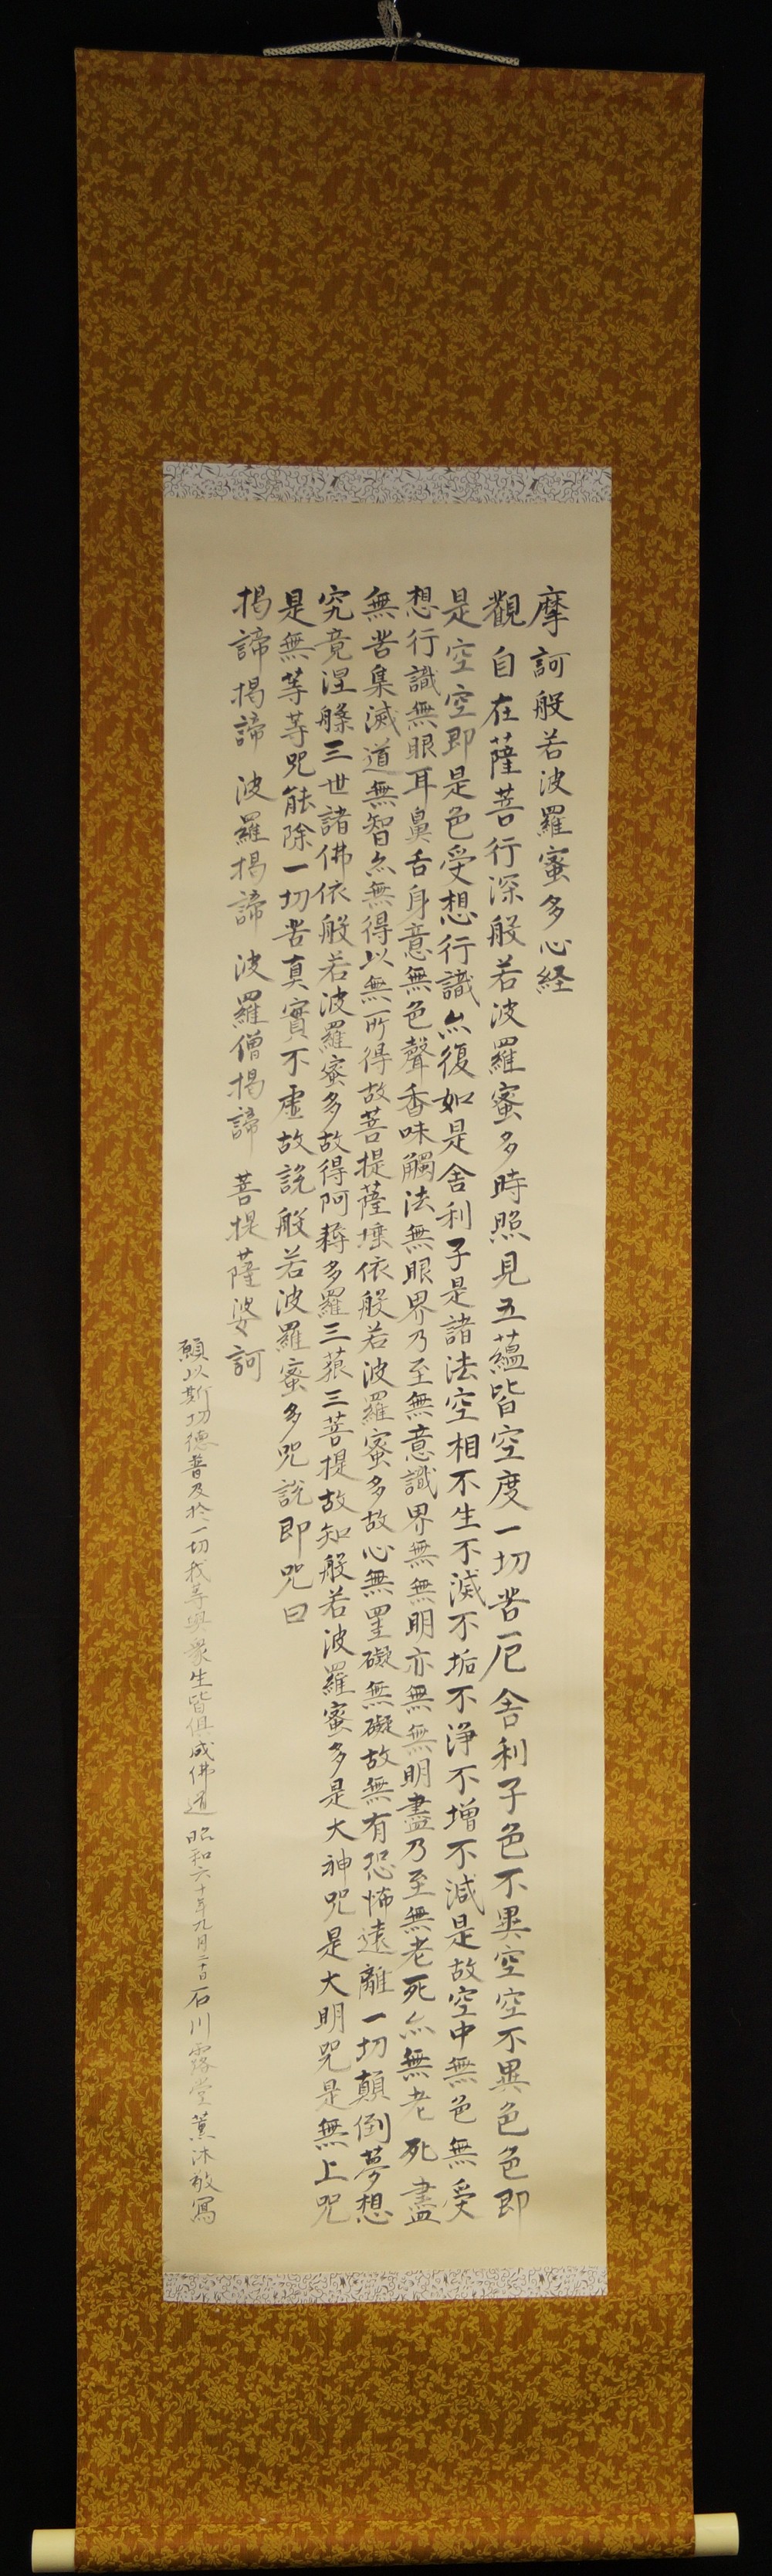 摩訶般若波羅蜜多心経
觀自在薩菩行深般若波羅蜜多時照見五蘊皆空度一切苦厄舎利子色不異空空不異色色即
是空空即是色受想行識亦復如是舎利子是諸法空相不生不滅不垢不浄不増不減是故空中無色無受
想行識無眼耳鼻舌身意無色聲香味觸法無眼界乃至無意識界無無明亦無無明盡乃至無老死亦無老死盡
無苦集滅道無智亦無得以無所得故菩提薩埵依般若波羅蜜多故心無罣礙無礙故無有恐怖遠離一切顛倒夢想
究竟涅槃三世諸佛依般若波羅蜜多故得阿耨多羅三藐三菩提故知般若波羅蜜多是大神咒是大明咒是無上咒
是無等等咒能除一切苦真實不虚故説般若波羅蜜多咒説即咒曰
揭諦揭諦 波羅揭諦 波羅僧揭諦 菩提薩婆訶
願以斯功德普及於一切我等與衆生皆俱成佛道 昭和六十年九月二十日石川露堂薫沐敬寫